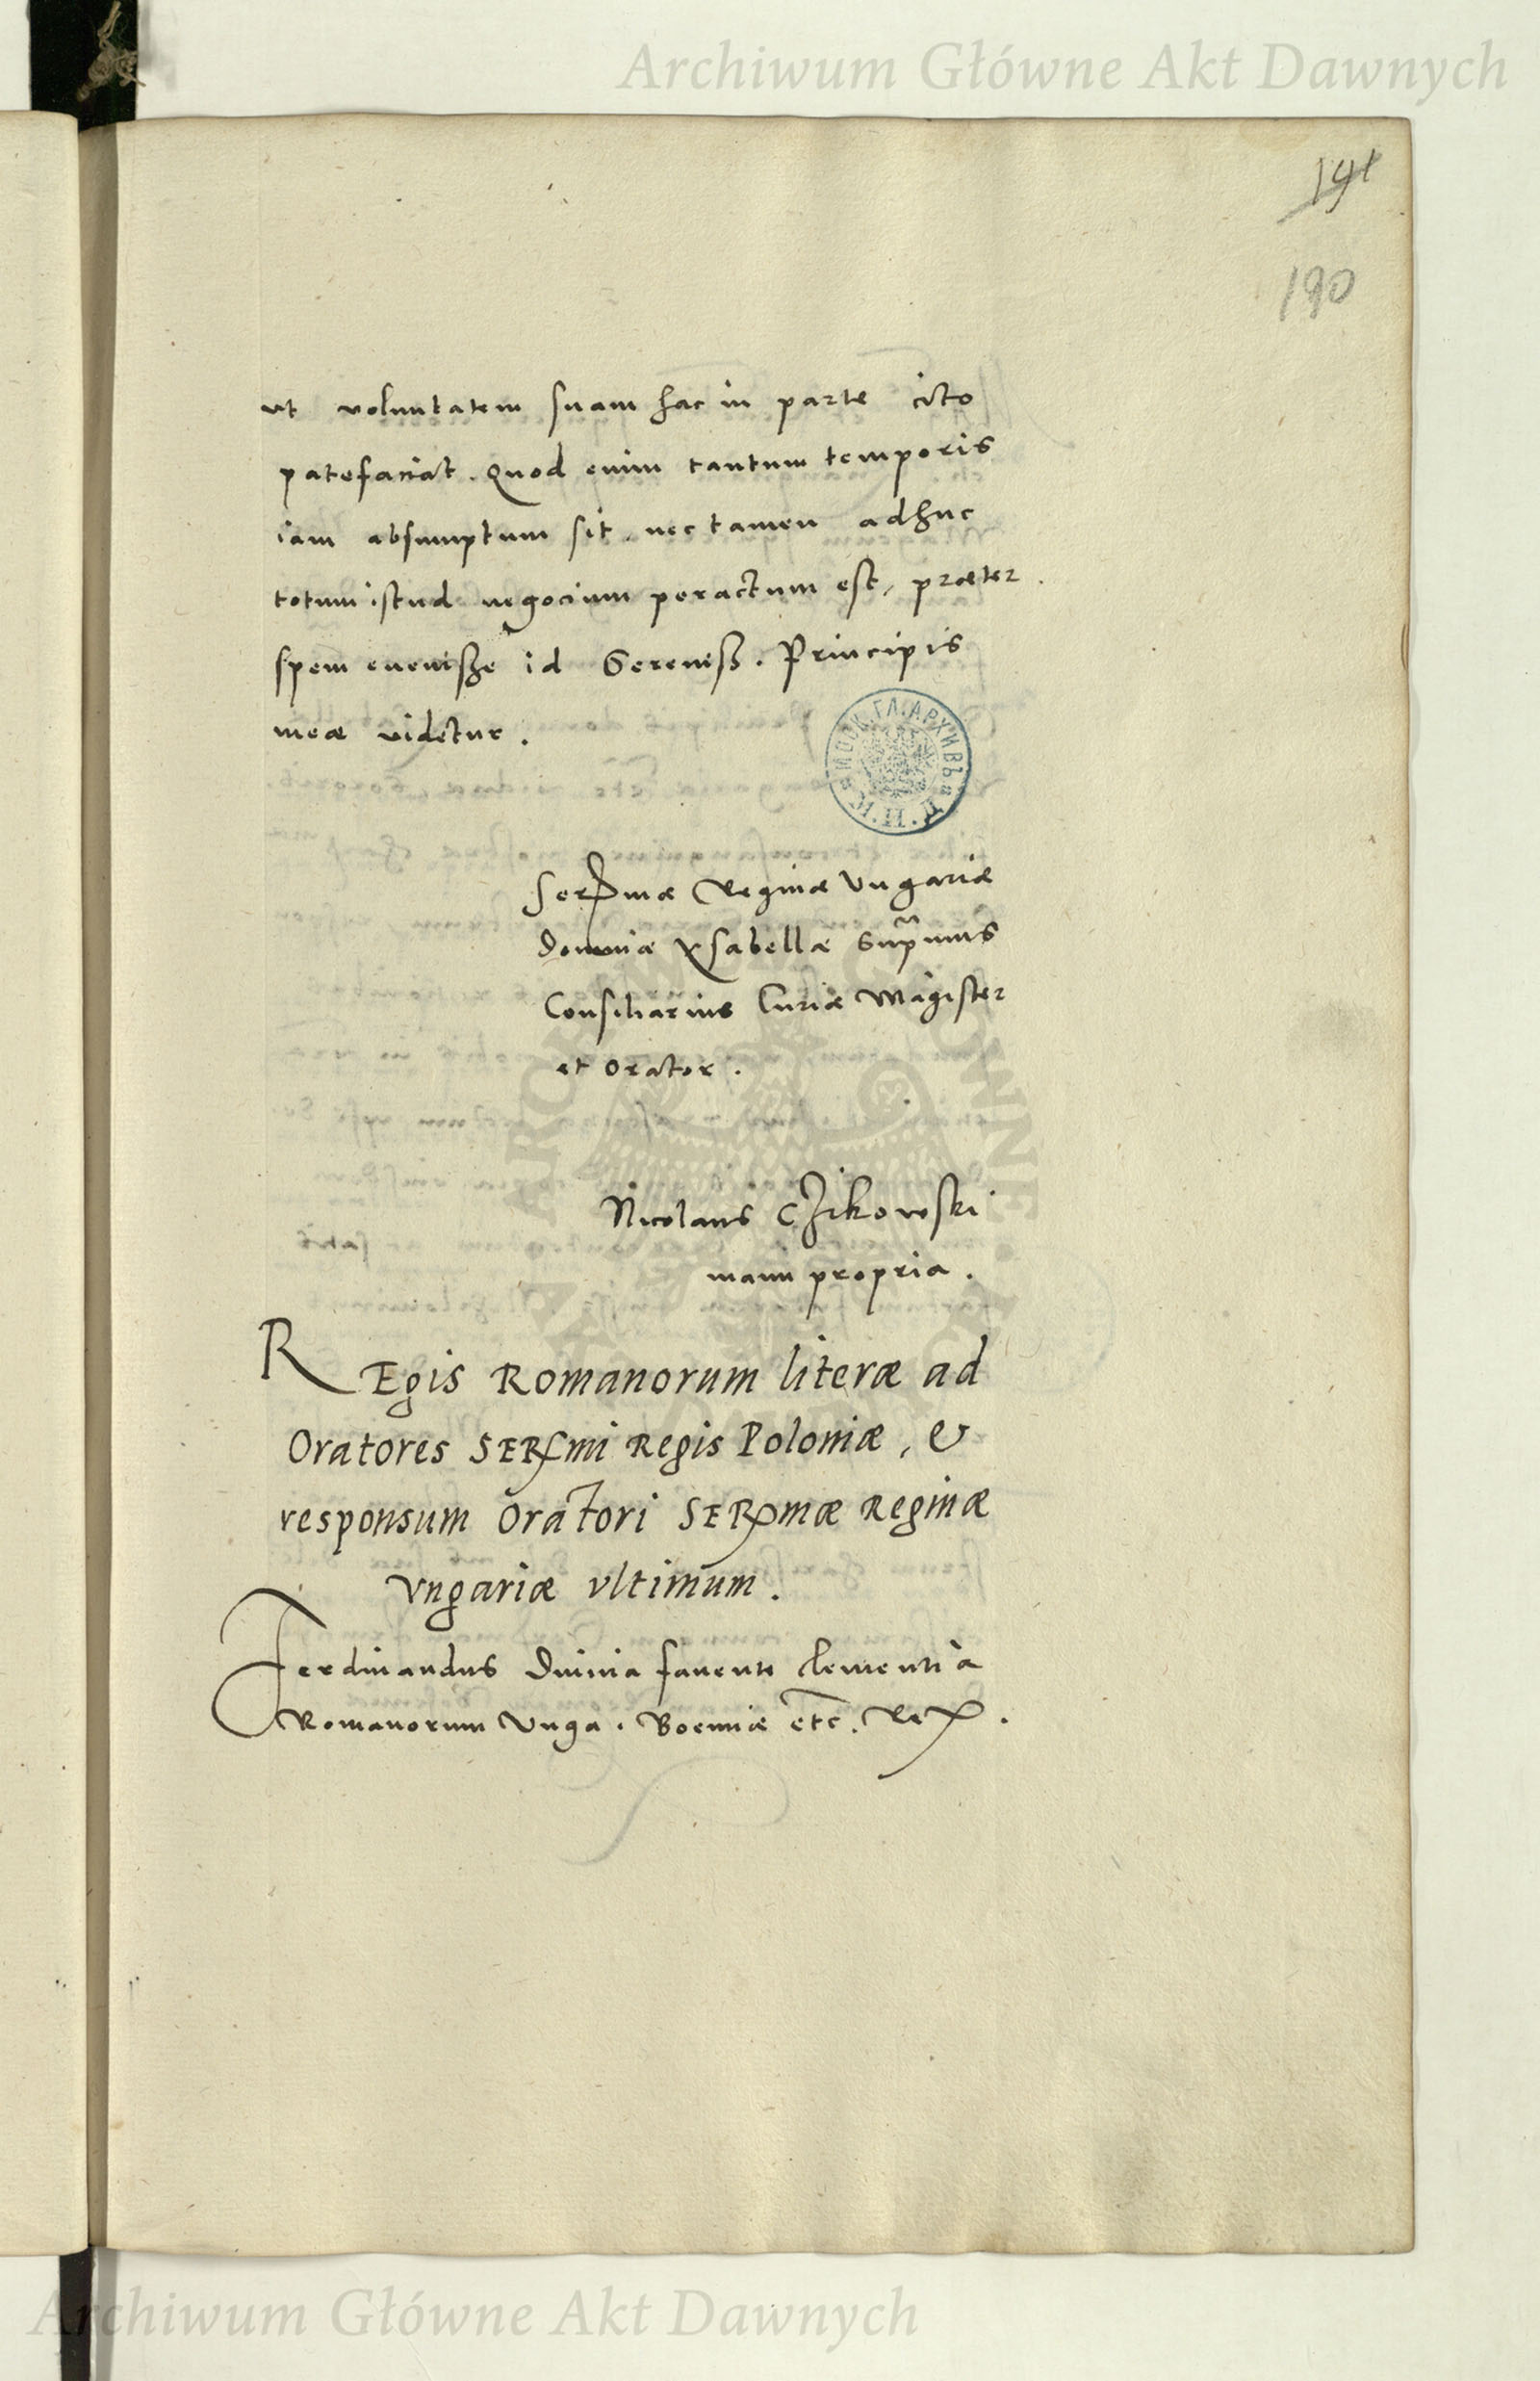 Archiwum Główne Akt Dawnych
191
190
ut voluntatem suam hac in parte cito
patefaciat. Quod enim tantum temporis
iam absumptum sit, nec tamen adhuc
totum istud negocium peractum est, præter
spem evenisse id Sereniss. Principis
meæ videtur.
МОСК. ГЛ. АРХИВЪ
Serᵐᵃᵉ Reginæ Vngariæ
Dominæ Ysabellæ Supmus
Consiliarius Curiæ Magister
et Orator.
Nicolaus CZikowski
manu propria.
REgis Romanorum literæ ad
Oratores SERmi Regis Poloniæ, &
responsum Oratori SERmæ Reginæ
Vngariæ vltimum.
Ferdinandus Divina favente clementià
Romanorum Vnga. Boemiæ etc. Rex.
Archiwum Główne Akt Dawnych